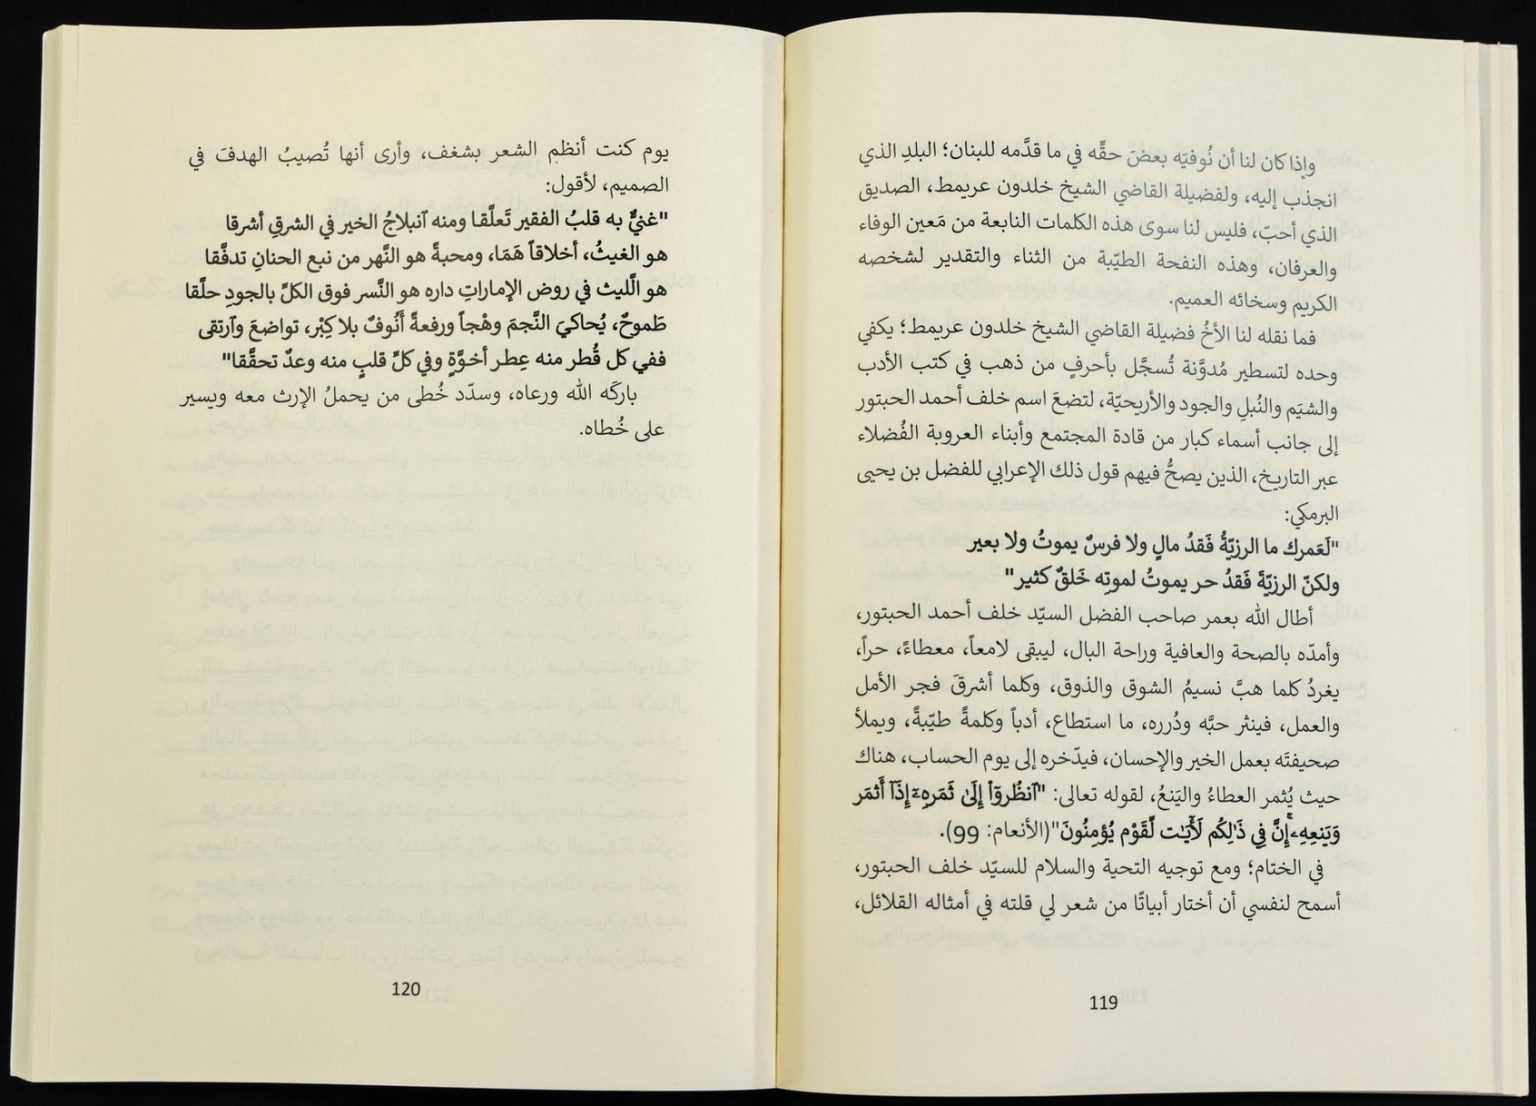 وإذا كان لنا أن نُوفيَه بعضَ حقِّه في ما قدَّمه للبنان؛ البلدِ الذي
انجذب إليه، ولفضيلة القاضي الشيخ خلدون عريمط، الصديق
الذي أحبّ، فليس لنا سوى هذه الكلمات النابعة من مَعين الوفاء
والعرفان، وهذه النفحة الطيّبة من الثناء والتقدير لشخصه
الكريم وسخائه العميم.
فما نقله لنا الأخُ فضيلة القاضي الشيخ خلدون عريمط؛ يكفي
وحده لتسطير مُدوَّنة تُسجَّل بأحرفٍ من ذهب في كتب الأدب
والشيَم والنُبلِ والجود والأريحيّة، لتضعَ اسم خلف أحمد الحبتور
إلى جانب أسماء كبار من قادة المجتمع وأبناء العروبة الفُضلاء
عبر التاريخ، الذين يصحُّ فيهم قول ذلك الإعرابي للفضل بن يحيى
البرمكي:
"لَعَمرك ما الرزيّةُ فَقدُ مالٍ ولا فرسٌ يموتُ ولا بعير
ولكنّ الرزيّةَ فَقدُ حر يموتُ لموتِه خَلقٌ كثير"
أطال الله بعمر صاحب الفضل السيّد خلف أحمد الحبتور،
وأمدّه بالصحة والعافية وراحة البال، ليبقى لامعاً، معطاءً، حراً،
يغردُ كلما هبَّ نسيمُ الشوق والذوق، وكلما أشرقَ فجر الأمل
والعمل، فينثر حبَّه ودُرره، ما استطاع، أدباً وكلمةً طيّبةً، ويملأ
صحيفتَه بعمل الخير والإحسان، فيدّخره إلى يوم الحساب، هناك
حيث يُثمر العطاءُ واليَنعُ، لقوله تعالى: "ٱنظُرُوٓاْ إِلَىٰ ثَمَرِهِۦٓ إِذَآ أَثمَر
وَيَنعِهِۦٓۚ إِنَّ فِي ذَٰلِكُم لَأٓيَٰت لِّقَوْم يُؤمِنُونَ"(الأنعام: 99).
في الختام؛ ومع توجيه التحية والسلام للسيّد خلف الحبتور،
أسمح لنفسي أن أختار أبياتًا من شعر لي قلته في أمثاله القلائل،
119
يوم كنت أنظم الشعر بشغف، وأرى أنها تُصيبُ الهدفَ في
الصميم، لأقول:
"غنيٌّ به قلبُ الفقير تَعلَّقا ومنه ٱنبلاجُ الخير في الشرقِ أشرقا
هو الغيثُ، أخلاقاً هَمَا، ومحبةً هو النَّهر من نبع الحنانِ تدفَّقا
هو الَّليث في روض الإماراتِ داره هو النَّسر فوق الكلِّ بالجودِ حلَّقا
طَموحٌ، يُحاكيَ النَّجمَ وهْجاً ورفعةً أَنُوفٌ بلا كِبْر، تواضعَ وٱرتقى
ففي كل قُطر منه عِطر أخوَّةٍ وفي كلِّ قلبٍ منه وعدٌ تحقَّقا"
باركَه الله ورعاه، وسدّد خُطى من يحملُ الإرث معه ويسير
على خُطاه.
120